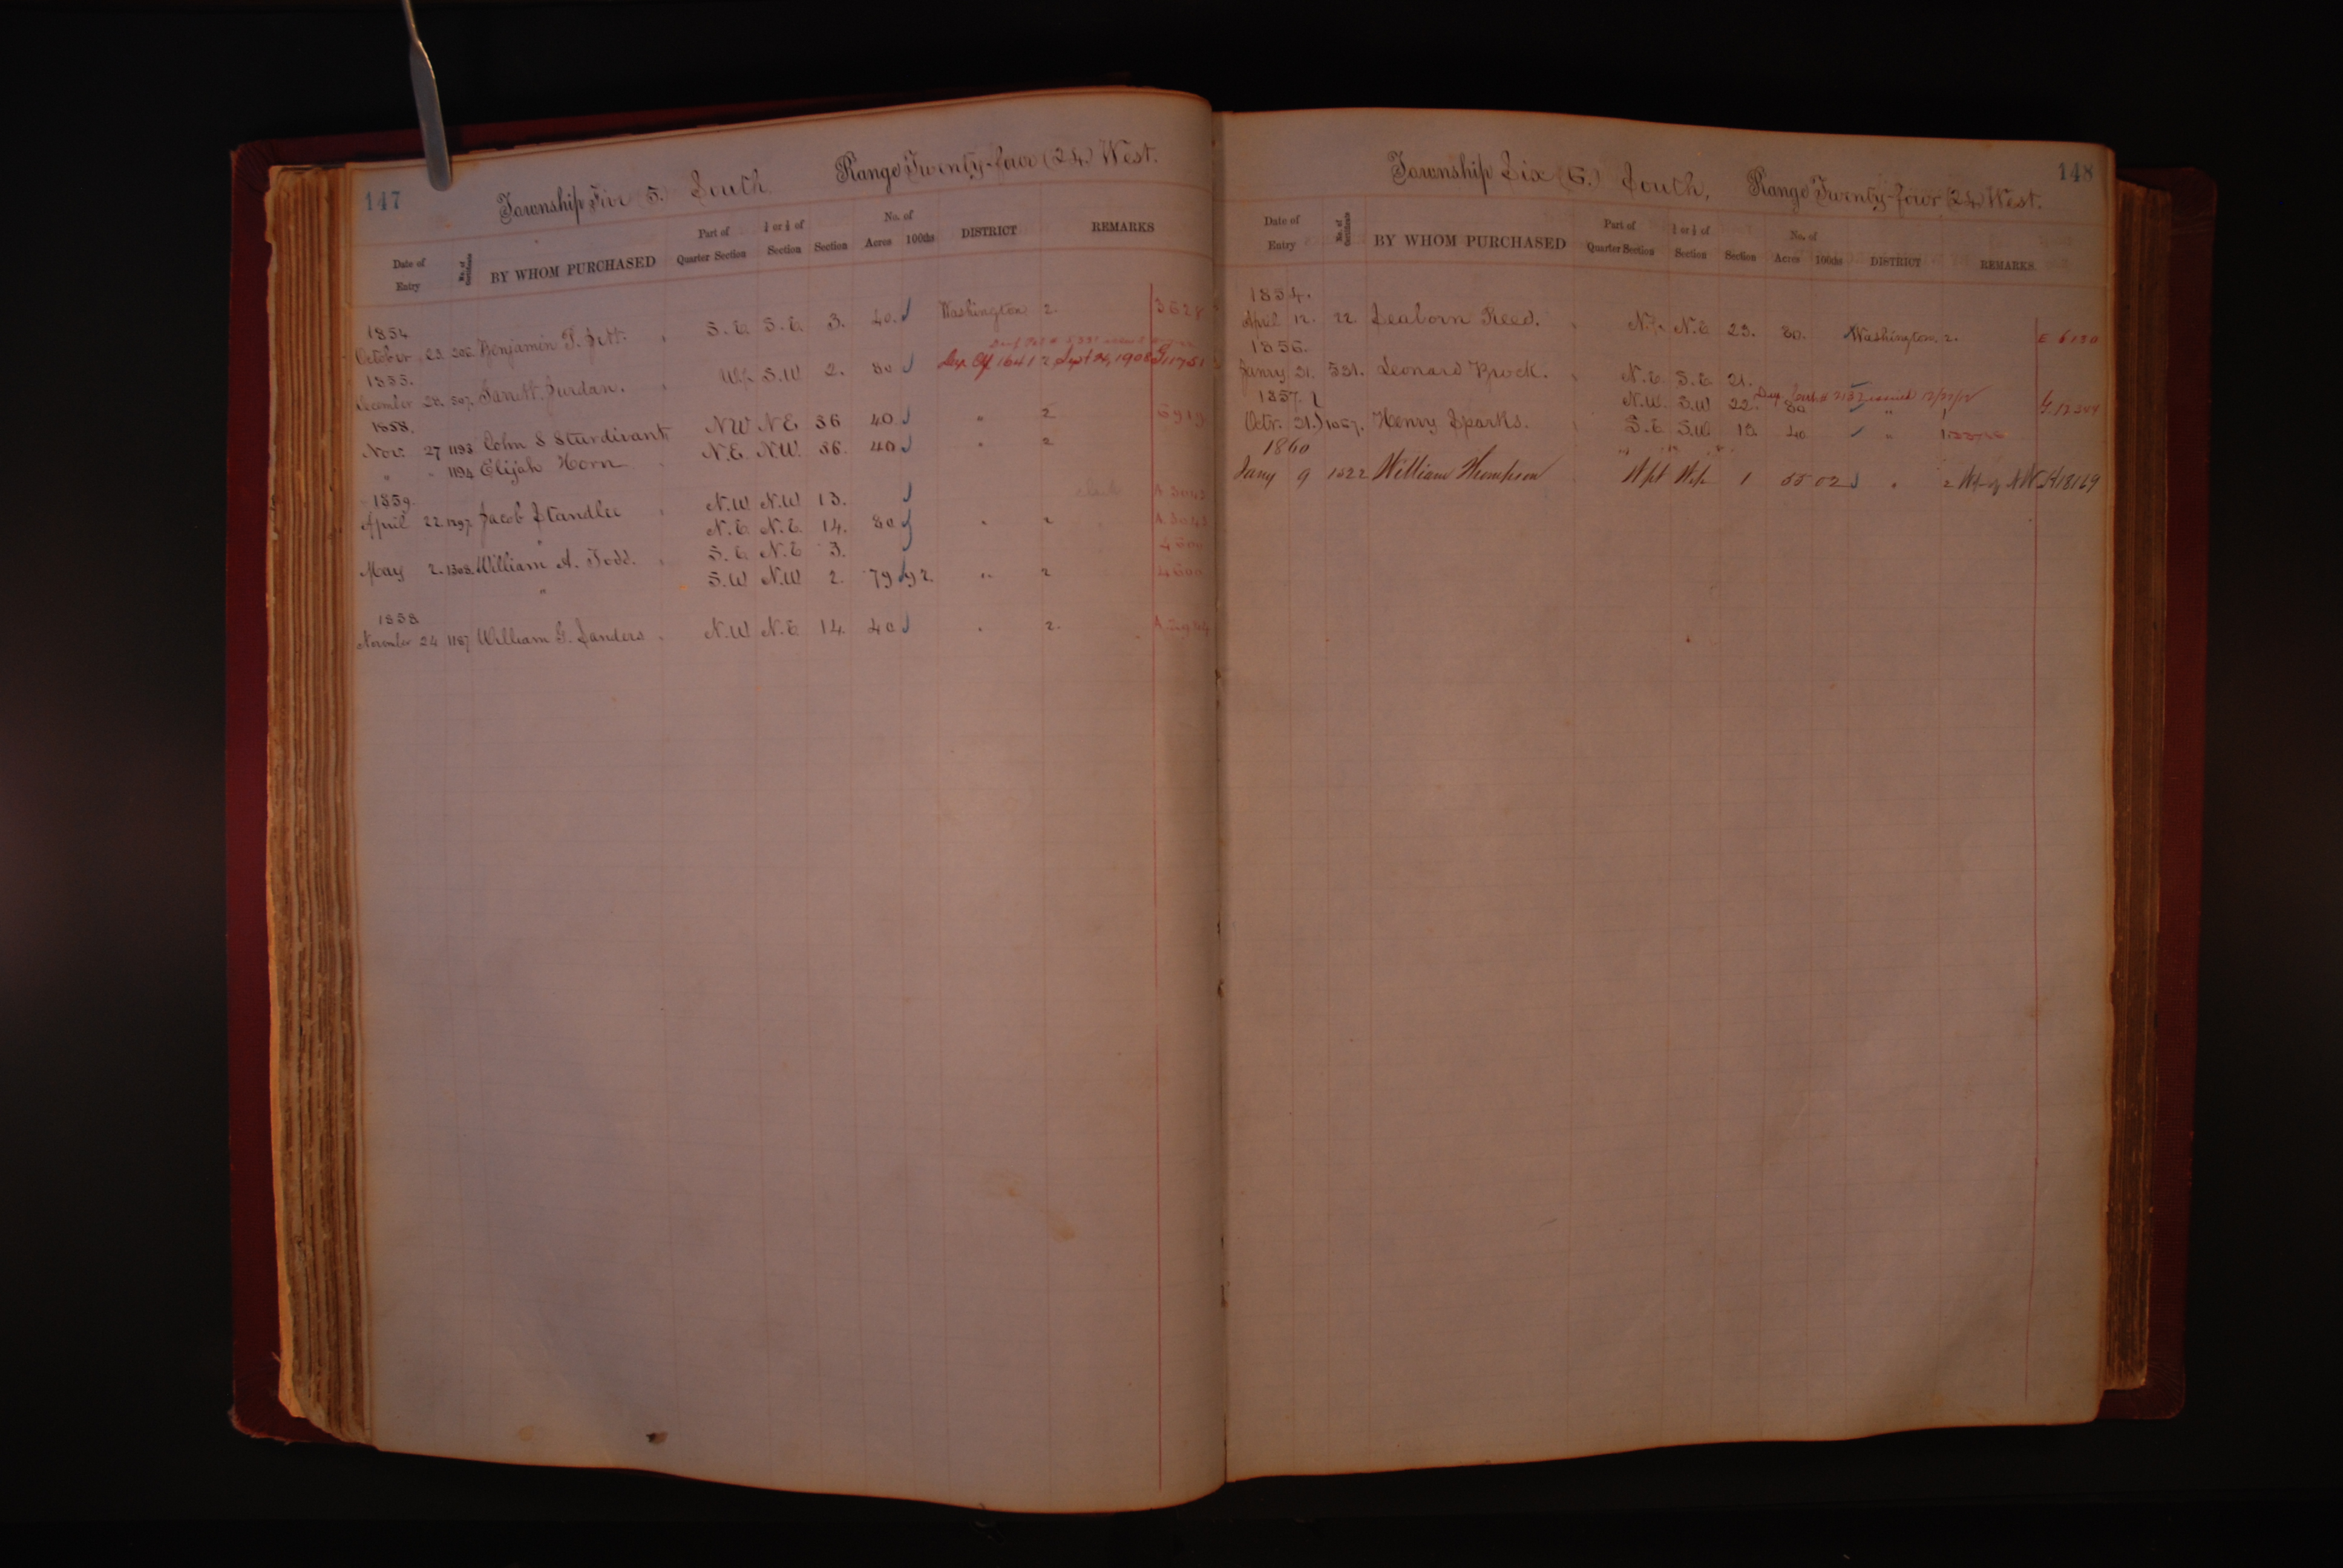 147
Township Five (5.) South Range Twenty-four (24.) West.
Date of Entry No. of Certificate BY WHOM PURCHASED Part of Quarter Section Section Section No. of Acres 100ths DISTRICT REMARKS
1854
October 23. Benjamin F. S. E. S. E. 3. 40. Washington 2. 3628
Dup. 16412 Sept 26, 1908 G11751
1855.
December 28. 507. Jarrett Jurdan. W½ S.W 2. 80
1858.
Nov. 27 1193 John S Sturdivant NW NE 36 40 " 2
" " 1194 Elijah Horn N.E. N.W. 36. 40 " 2
1859.
April 22. 1297. Jacob Standlee N.W N.W 13.
N.E. N.E. 14. 80 " 2
May 2. 1308. William A. Todd. S. E. N.E 3.
" S.W N.W. 2. 79 92. " 2
1858.
November 24 1187 William G. Sanders N.W N.E 14. 40 " 2.
148
Township Six (6.) South, Range Twenty-four (24) West.
Date of Entry No. of Certificate BY WHOM PURCHASED Part of Quarter Section Section Section No. of Acres 100ths DISTRICT REMARKS.
1854.
April 12. 22. Seaborn Reed. N½ N.E 23. 80. Washington, 2. E 6130
1856.
Janry 31. 531. Leonard Brock. N.E. S.E 21.
1857. N.W. S.W 22. 80 " G.12344
Octr. 31. 1067. Henry Sparks. S.E S.W 15. 40 " 1
1860
Jany 9 1522 William Thompson 1 55 02 " 2 H18169